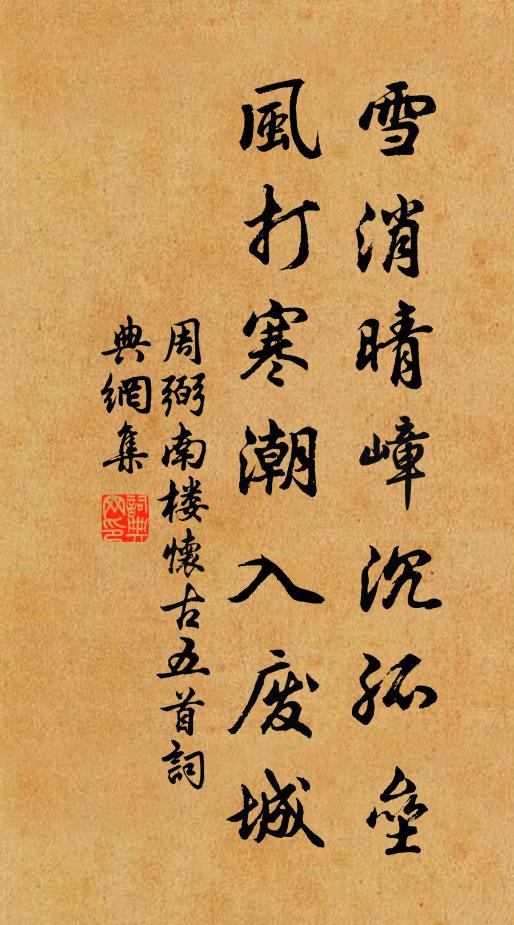 雪消晴嶂沉孤壘
風打寒潮入废城
周弼南楼懷古五首詞
典網集
詞典
网印